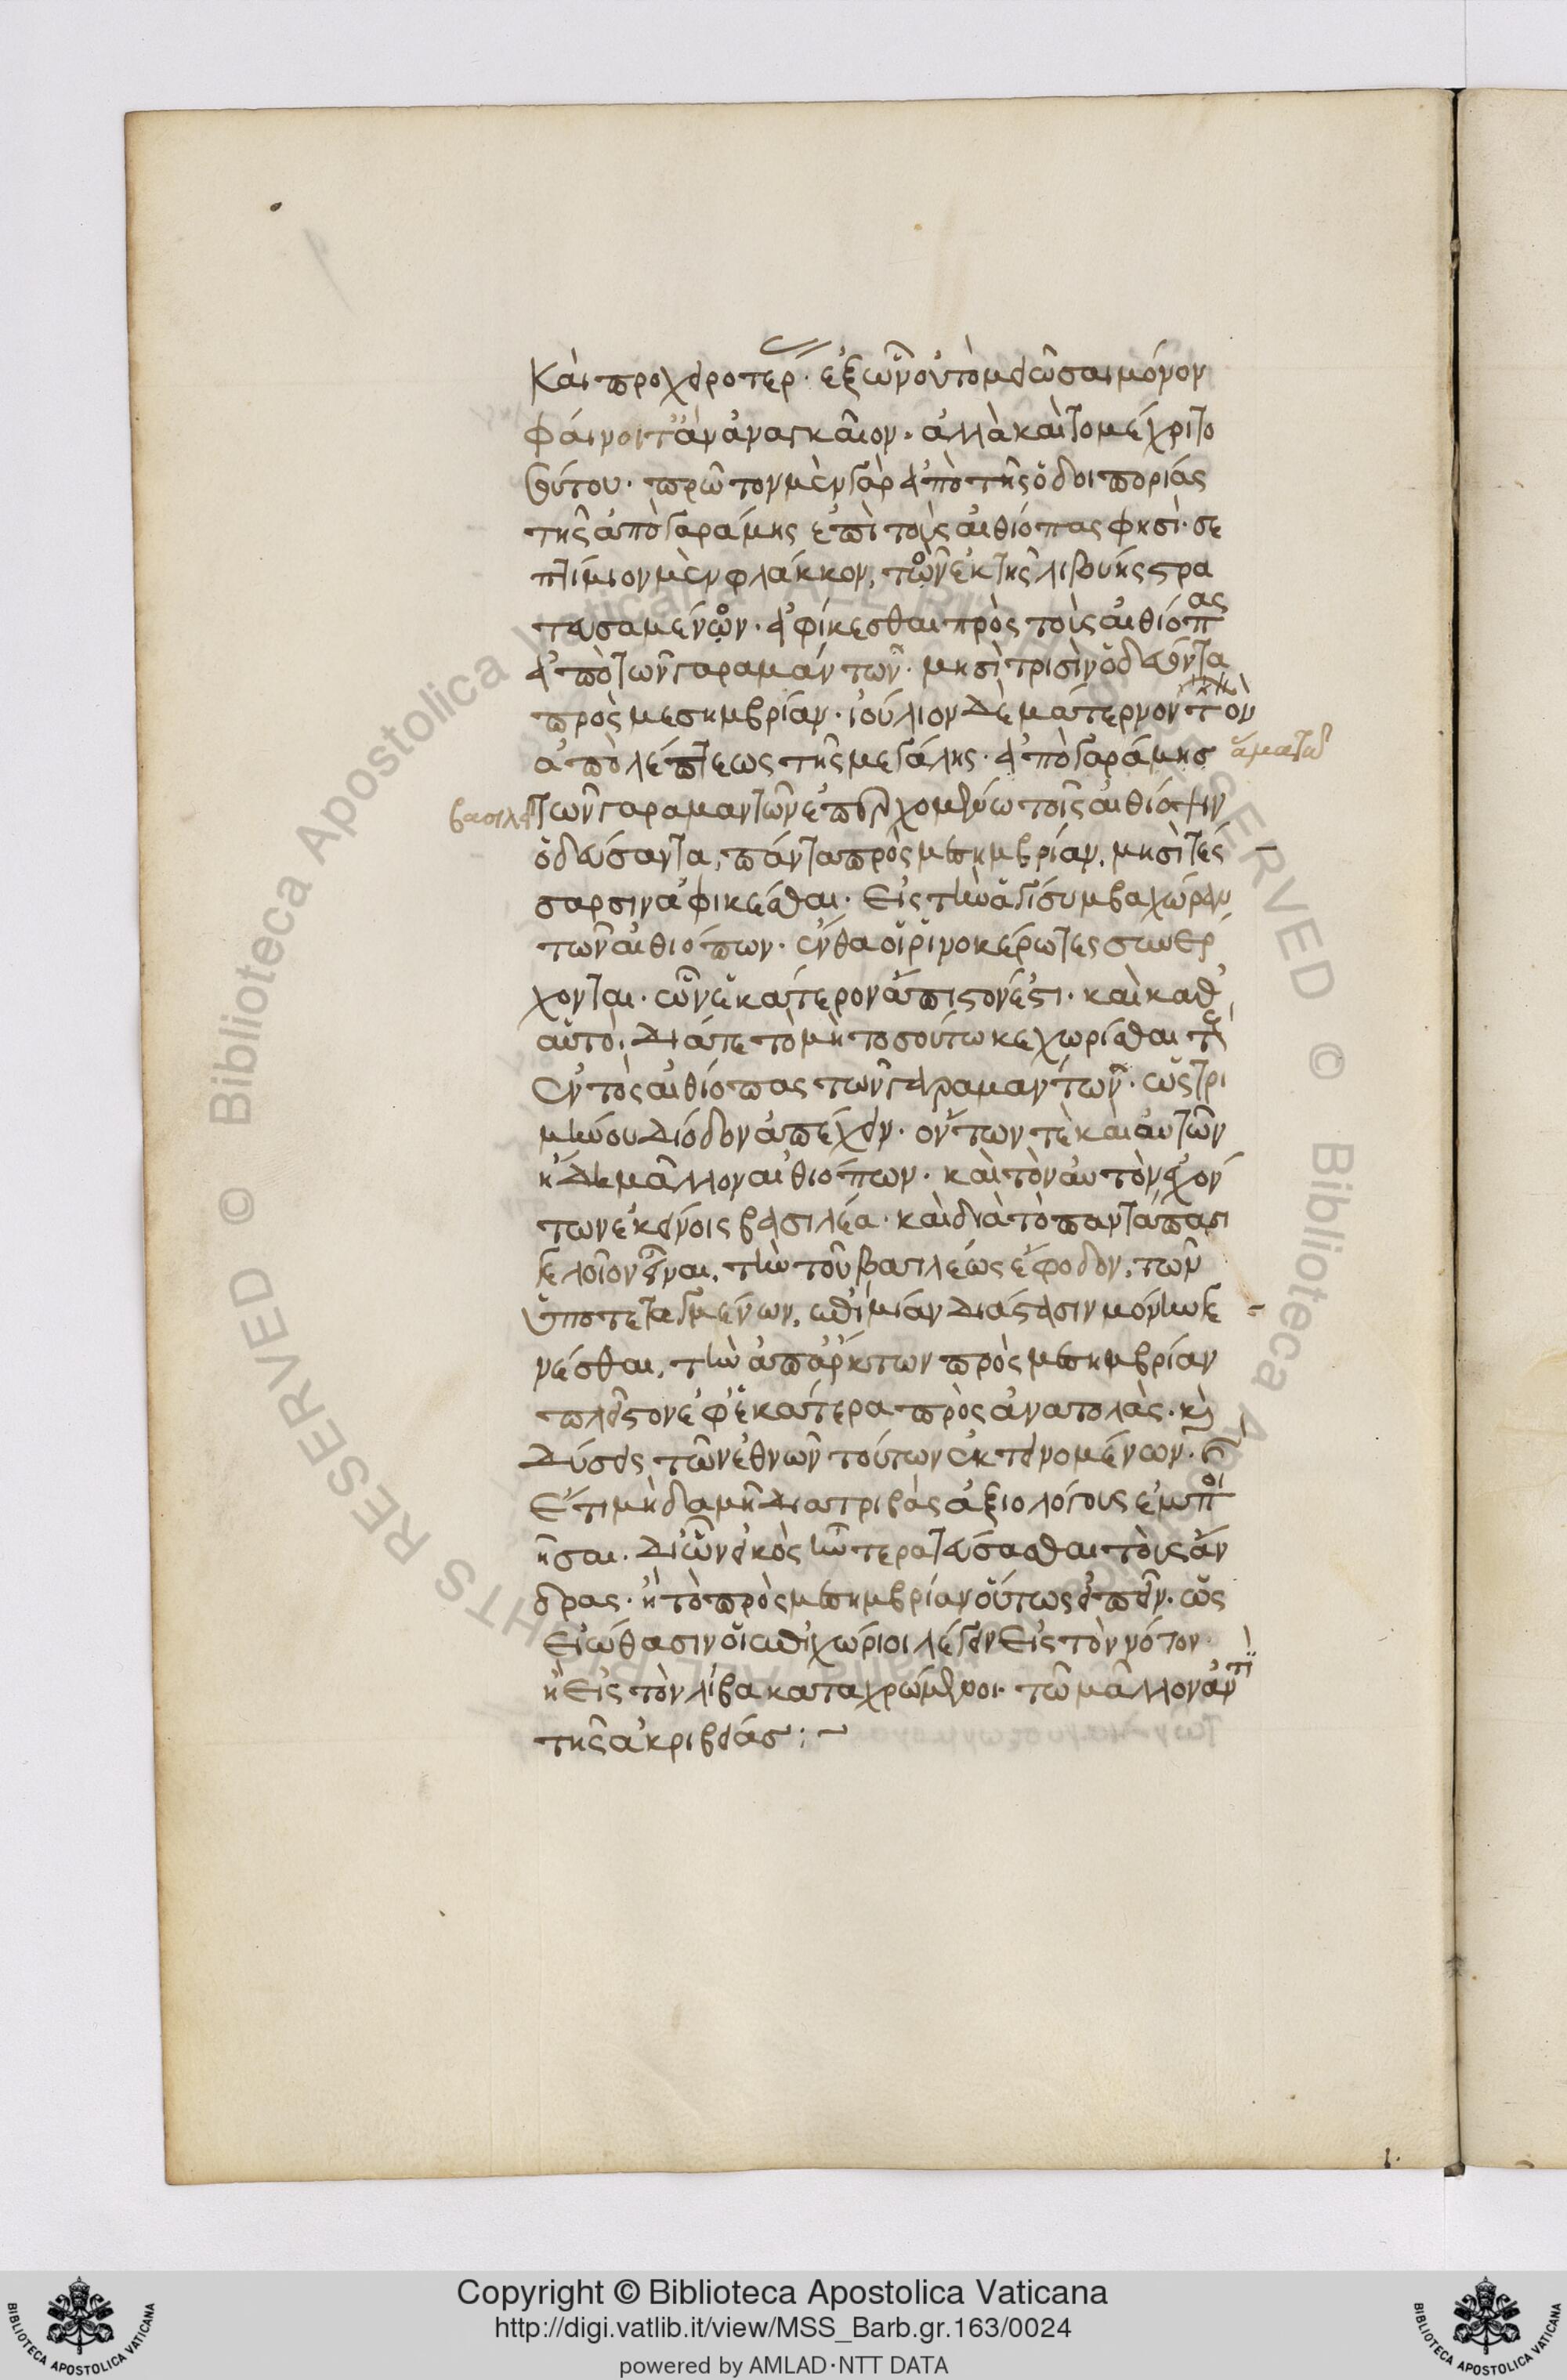 Και προχειροτερ· εξ ὧν οὐ τὸ μειῶσαι μόνον
φαίνοιτ' ἂν ἀναγκαῖον· ἀλλὰ καὶ τὸ μέχρι το
σύτου· πρῶτον μὲν γὰρ ἀπὸ τῆς ὁδοιπορίας
τῆς ἀπὸ γαράμης ἐπὶ τοὺς αἰθίοπας φησὶ· σε
πτίμιον μὲν φλάκκον, τῶν ἐκ τῆς λιβουής στρα
τευσαμένων· ἀφίκεσθαι πρὸς τοὺς αἰθίοπας
ἀπὸ τῶν γαραμάντων· μησὶ τρισὶν ὁδεύοντα
πρὸς μεσημβρίαν· ἰούλιον δὲ μάτερνον τὸν
ἀπὸ λέπτεως τῆς μεγάλης· ἀπὸ γαράμης ἅμα τῶ
βασιλεῖ τῶν γαραμαντῶν ἐπερχομένω τοῖς αἰθίοψιν
ὁδεύσαντα, πάντα πρὸς μεσημβρίαν, μησὶ τές
σαρσιν ἀφικέσθαι· εἰς τὴν ἀγίσυμβα χώραν
τῶν αἰθιόπων· ἔνθα οἱ ῥινοκέρωτες συνέρ
χονται· ὧν ἑκάτερον ἄπιστόν ἐστι· καὶ καθ'
αὑτὸ, διά τε τὸ μὴ τοσούτω κεχωρίσθαι τοὺς
ἐντὸς αἰθίοπας τῶν γαραμαντων· ὡς τρι
μήνου διόδον ἀπέχειν· όντων τὲ καὶ αὐτῶν
ἤδη μᾶλλον αἰθιόπων· καὶ τὸν αὐτὸν ἐχόν
των ἐκείνοις βασιλέα· καὶ διὰ τὸ παντάπασι
γελοῖον εἶναι, τὴν τοῦ βασιλέως ἔφοδον, τῶν
ὑποτεταγμένων, ἐπὶ μίαν διάστασιν μόνην γε
νέσθαι, τὴν ἀπ' ἄρκτων πρὸς μεσημβρίαν
πλεῖστον ἐφ' ἑκάτερα πρὸς ἀνατολὰς· καὶ
δύσεις τῶν ἐθνῶν τούτων ἐκτεινομένων· καὶ
ἔτι μηδαμῆ διατριβὰς ἀξιολόγους ἐμποι
ῆσαι· δι' ὧν εἰκὸς ἦν τερατεύσασθαι τοὺς ἄν
δρας· ἢ τὸ πρὸς μεσημβρίαν οὕτως εἰπεῖν· ὡς
εἰώθασιν οἱ ἐπιχώριοι λέγειν εἰς τὸν νότον·
ἢ εἰς τὸν λίβα καταχρώμενοι· τῶ μᾶλλον ἀντὶ
τῆς ἀκριβείας :